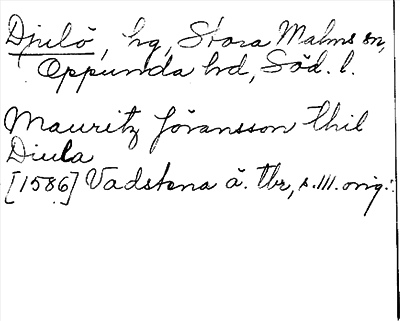 Djulö, hg, Stora Malms sn,
Oppunda hd, Söd. l.
Mauritz Jöransson thil
Diula
[1586] Vadstena ä. tbr, s. 111. orig.